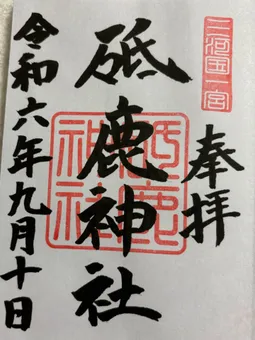 三河国一宮
奉拝
砥鹿神社
砥鹿神社
令和六年九月十日